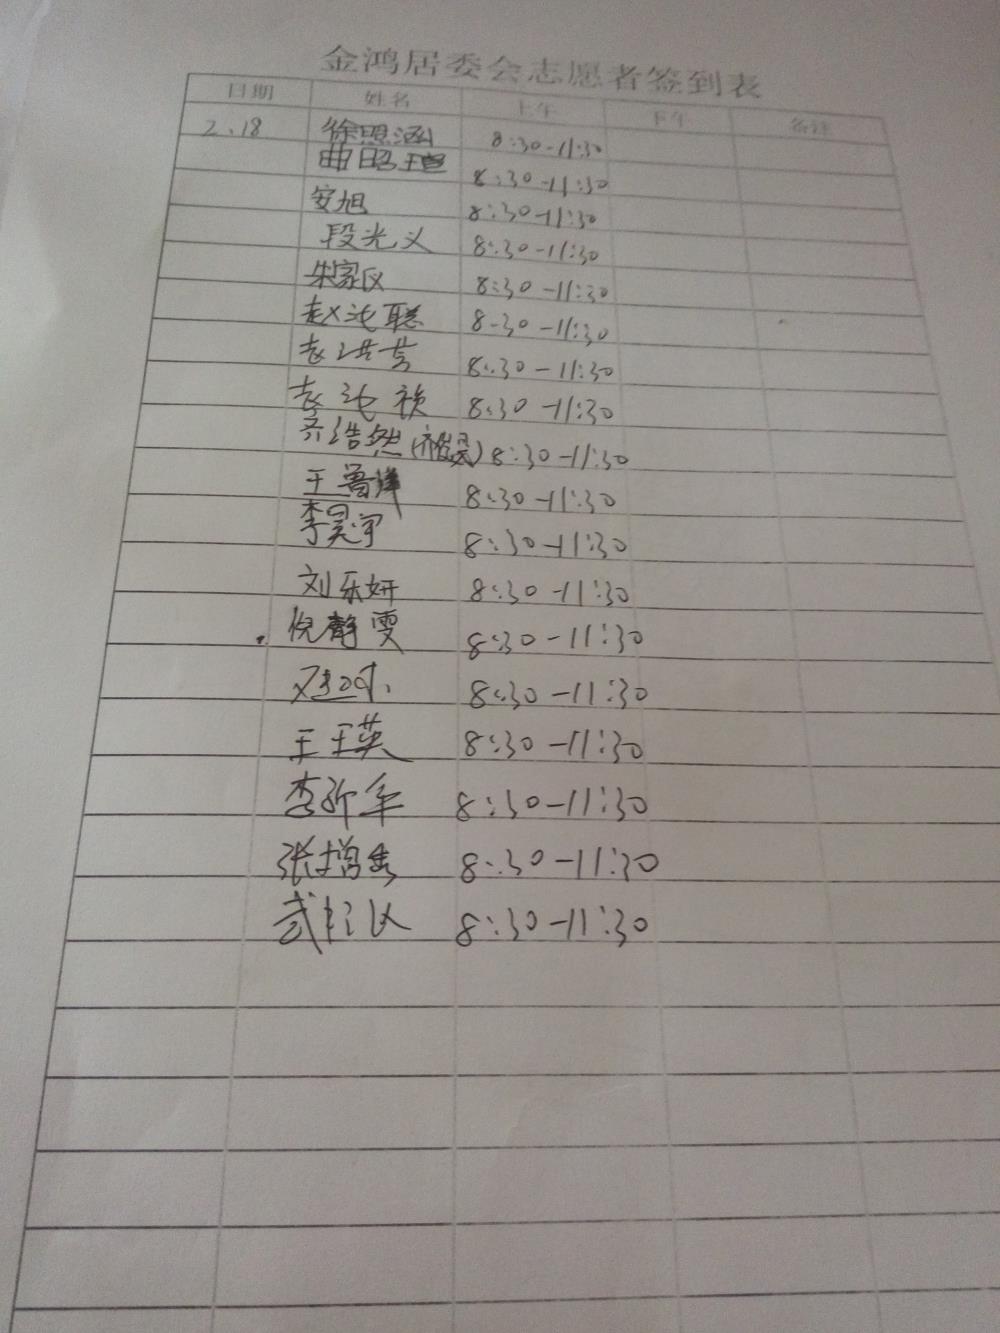 金鸿居委会志愿者签到表
日期 姓名 上午 下午 备注
2.18 徐照涵 8:30-11:30
曲昭 8:30-11:30
安旭 8:30-11:30
段光义 8:30-11:30
朱家仪 8:30-11:30
赵沈聪 8-30-11:30
8:30-11:30
8:30-11:30
齐浩然 8:30-11:30
王鲁洋 8:30-11:30
李昊宇 8:30-11:30
刘乐妍 8:30-11:30
倪静雯 8:30-11:30
8:30-11:30
王玉英 8:30-11:30
李 军 8:30-11:30
张增秀 8:30-11:30
武 8:30-11:30